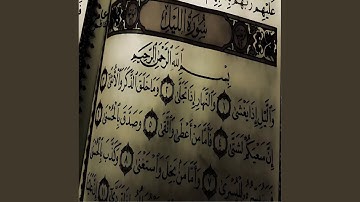 عَلَيْهِمْ رَبُّهُم
سُورَةُ اللَّيْلِ
بِسْمِ اللَّهِ الرَّحْمَٰنِ الرَّحِيمِ
وَاللَّيْلِ إِذَا يَغْشَىٰ ١ وَالنَّهَارِ إِذَا تَجَلَّىٰ ٢ وَمَا خَلَقَ الذَّكَرَ وَالْأُنثَىٰ
إِنَّ سَعْيَكُمْ لَشَتَّىٰ ٤ فَأَمَّا مَنْ أَعْطَىٰ وَاتَّقَىٰ ٥ وَصَدَّقَ بِالْحُسْنَىٰ
لِلْيُسْرَىٰ ٧ وَأَمَّا مَن بَخِلَ وَاسْتَغْنَىٰ ٨ وَكَذَّبَ بِالْحُسْنَىٰ